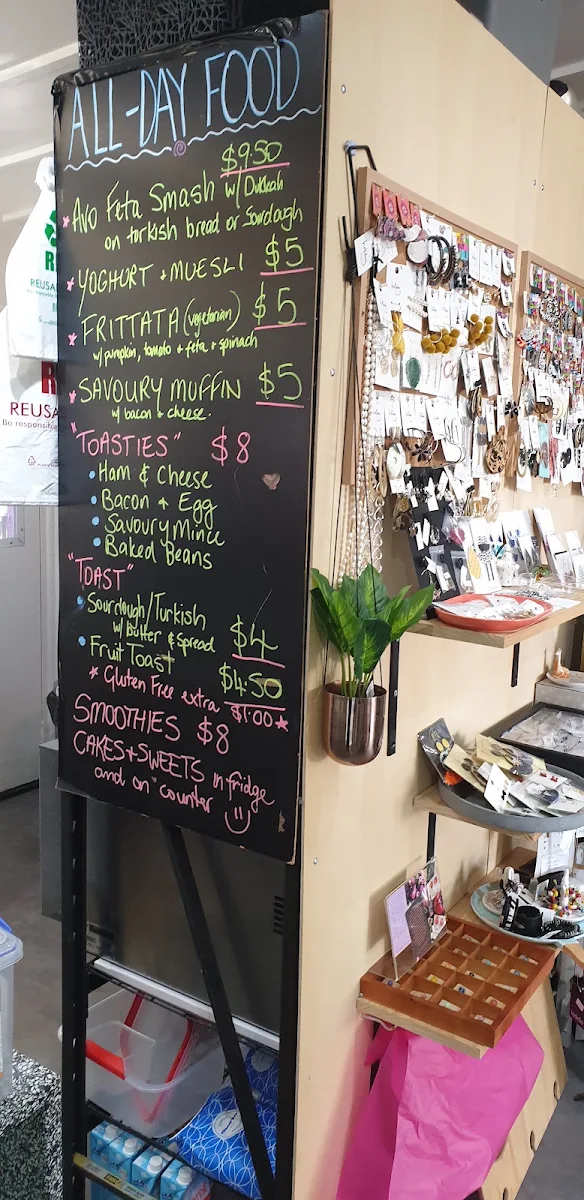 ALL-DAY FOOD
$9.50
* Avo Feta Smash w/ Dukkah
on turkish bread or Sourdough
* YOGHURT + MUESLI $5
* FRITTATA (vegetarian) $5
w/ pumpkin, tomato + feta + spinach
* SAVOURY MUFFIN $5
w/ bacon + cheese.
"TOASTIES" $8
• Ham & Cheese
• Bacon + Egg
• Savoury Mince
• Baked Beans
"TOAST"
• Sourdough/Turkish
w/ butter & Spread $4
• Fruit Toast $4.50
* Gluten Free extra $1.00 *
SMOOTHIES $8
CAKES + SWEETS in fridge
and on counter
REUS
REUSA
Be responsible